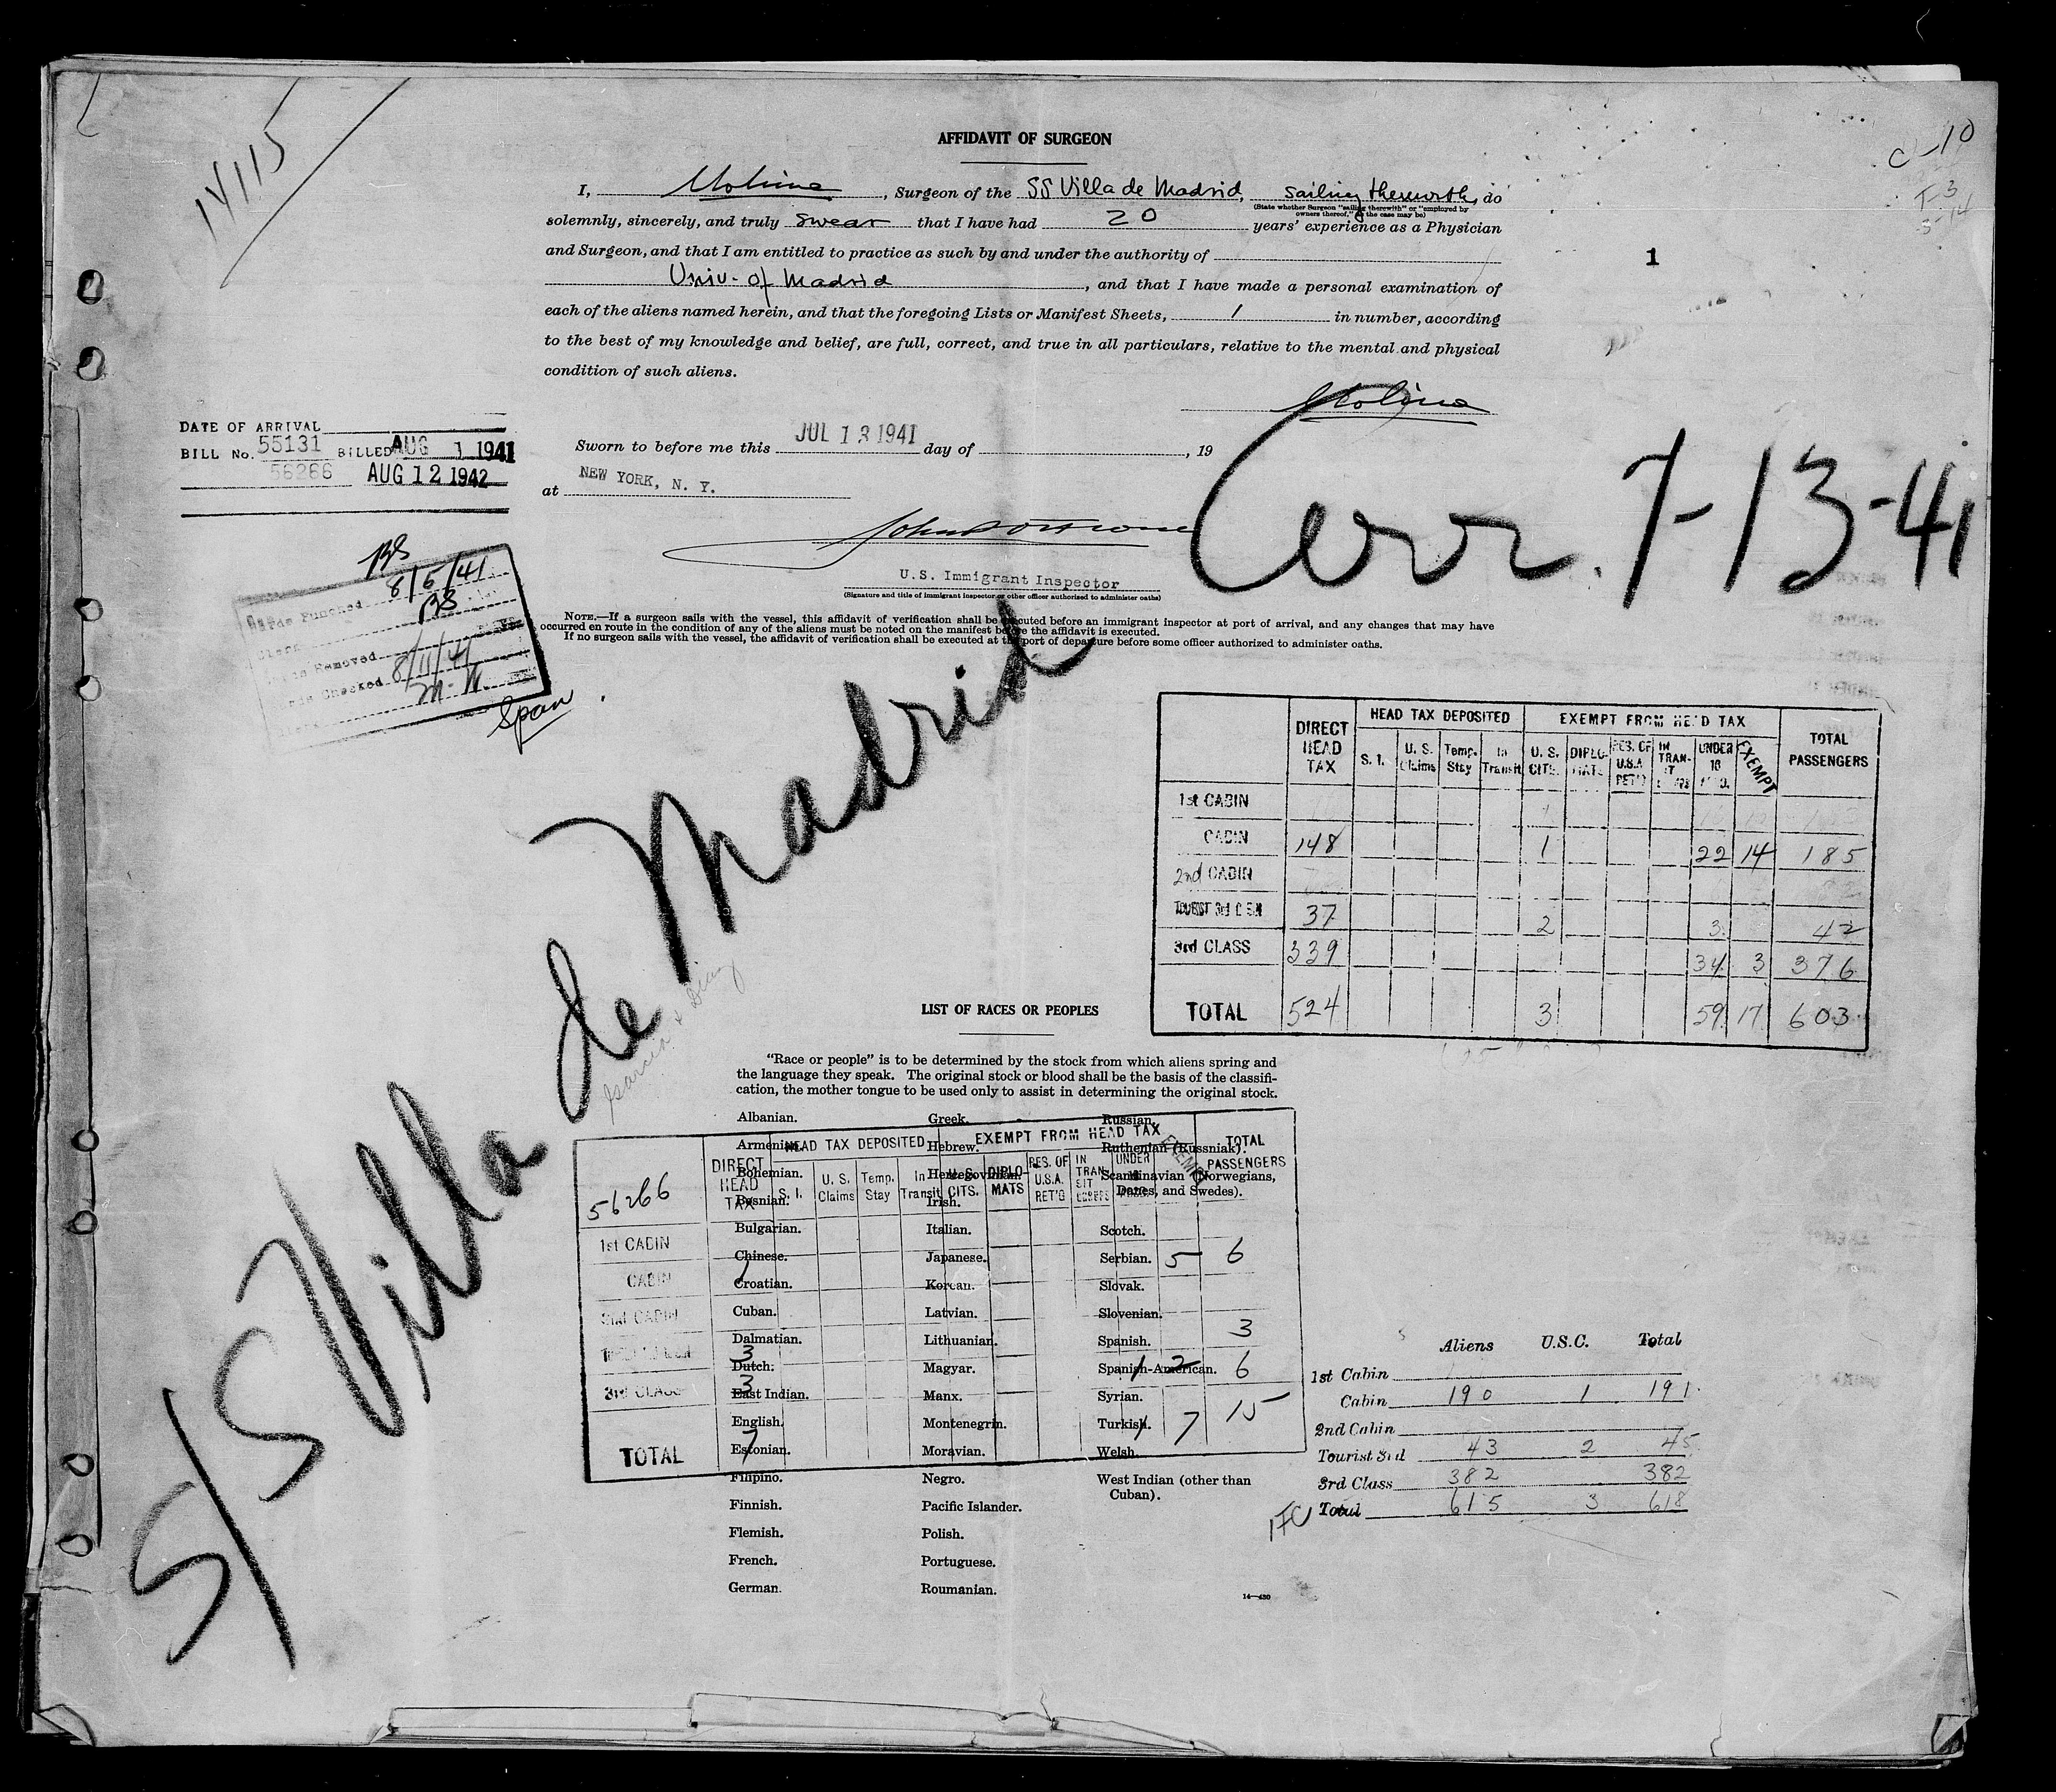 14115
C-10
T-3
3-14
1
AFFIDAVIT OF SURGEON
I, Molina, Surgeon of the SS Villa de Madrid, sailing therewith, do
(State whether Surgeon "sailing therewith" or "employed by
owners thereof," as the case may be)
solemnly, sincerely, and truly swear that I have had 20 years' experience as a Physician
and Surgeon, and that I am entitled to practice as such by and under the authority of
Univ. of Madrid, and that I have made a personal examination of
each of the aliens named herein, and that the foregoing Lists or Manifest Sheets, 1 in number, according
to the best of my knowledge and belief, are full, correct, and true in all particulars, relative to the mental and physical
condition of such aliens.
Molina
DATE OF ARRIVAL
BILL No. 55131 BILLED AUG 1 1941
56266 AUG 12 1942
Sworn to before me this JUL 13 1941 day of , 19
at NEW YORK, N. Y.
Arr. 7-13-41
U.S. Immigrant Inspector
(Signature and title of immigrant inspector or other officer authorized to administer oaths)
NOTE.—If a surgeon sails with the vessel, this affidavit of verification shall be executed before an immigrant inspector at port of arrival, and any changes that may have
occurred en route in the condition of any of the aliens must be noted on the manifest before the affidavit is executed.
If no surgeon sails with the vessel, the affidavit of verification shall be executed at the port of departure before some officer authorized to administer oaths.
Cards Punched 8/5/41
Clerk
Removed
Checked 8/11/41
Span
S/S Villa de Madrid
DIRECT HEAD TAX HEAD TAX DEPOSITED EXEMPT FROM HEAD TAX TOTAL PASSENGERS
S. I. U. S. Claims Temp. Stay In Transit U. S. CITS. DIPLOMATS RES. OF U.S.A. RET'D IN TRANSIT UNDER 16 EXEMPT
1st CABIN
CABIN 148 1 22 14 185
2nd CABIN
TOURIST 3rd CABIN 37 2 3 42
3rd CLASS 339 34 3 376
TOTAL 524 3 59 17 603
LIST OF RACES OR PEOPLES
"Race or people" is to be determined by the stock from which aliens spring and
the language they speak. The original stock or blood shall be the basis of the classifi-
cation, the mother tongue to be used only to assist in determining the original stock.
Albanian.
Armenian.
Bohemian.
Bosnian.
Bulgarian.
Chinese.
Croatian.
Cuban.
Dalmatian.
Dutch.
East Indian.
English.
Estonian.
Filipino.
Finnish.
Flemish.
French.
German.
Greek.
Hebrew.
Herzegovinian.
Irish.
Italian.
Japanese.
Korean.
Latvian.
Lithuanian.
Magyar.
Manx.
Montenegrin.
Moravian.
Negro.
Pacific Islander.
Polish.
Portuguese.
Roumanian.
Russian.
Ruthenian (Russniak).
Scandinavian (Norwegians,
Danes, and Swedes).
Scotch.
Serbian.
Slovak.
Slovenian.
Spanish.
Spanish-American.
Syrian.
Turkish.
Welsh.
West Indian (other than
Cuban).
56266 DIRECT HEAD TAX HEAD TAX DEPOSITED EXEMPT FROM HEAD TAX TOTAL PASSENGERS
S. I. U. S. Claims Temp. Stay In Transit U. S. CITS. DIPLOMATS RES. OF U.S.A. RET'D IN TRANSIT UNDER EXEMPT
1st CABIN
CABIN 1 5 6
2nd CABIN
3 3
3rd CLASS 3 1 2 6
TOTAL 7 1 7 15
Aliens U.S.C. Total
1st Cabin
Cabin 190 1 191
2nd Cabin
Tourist 3rd 43 2 45
3rd Class 382 382
Total 615 3 618
14—430